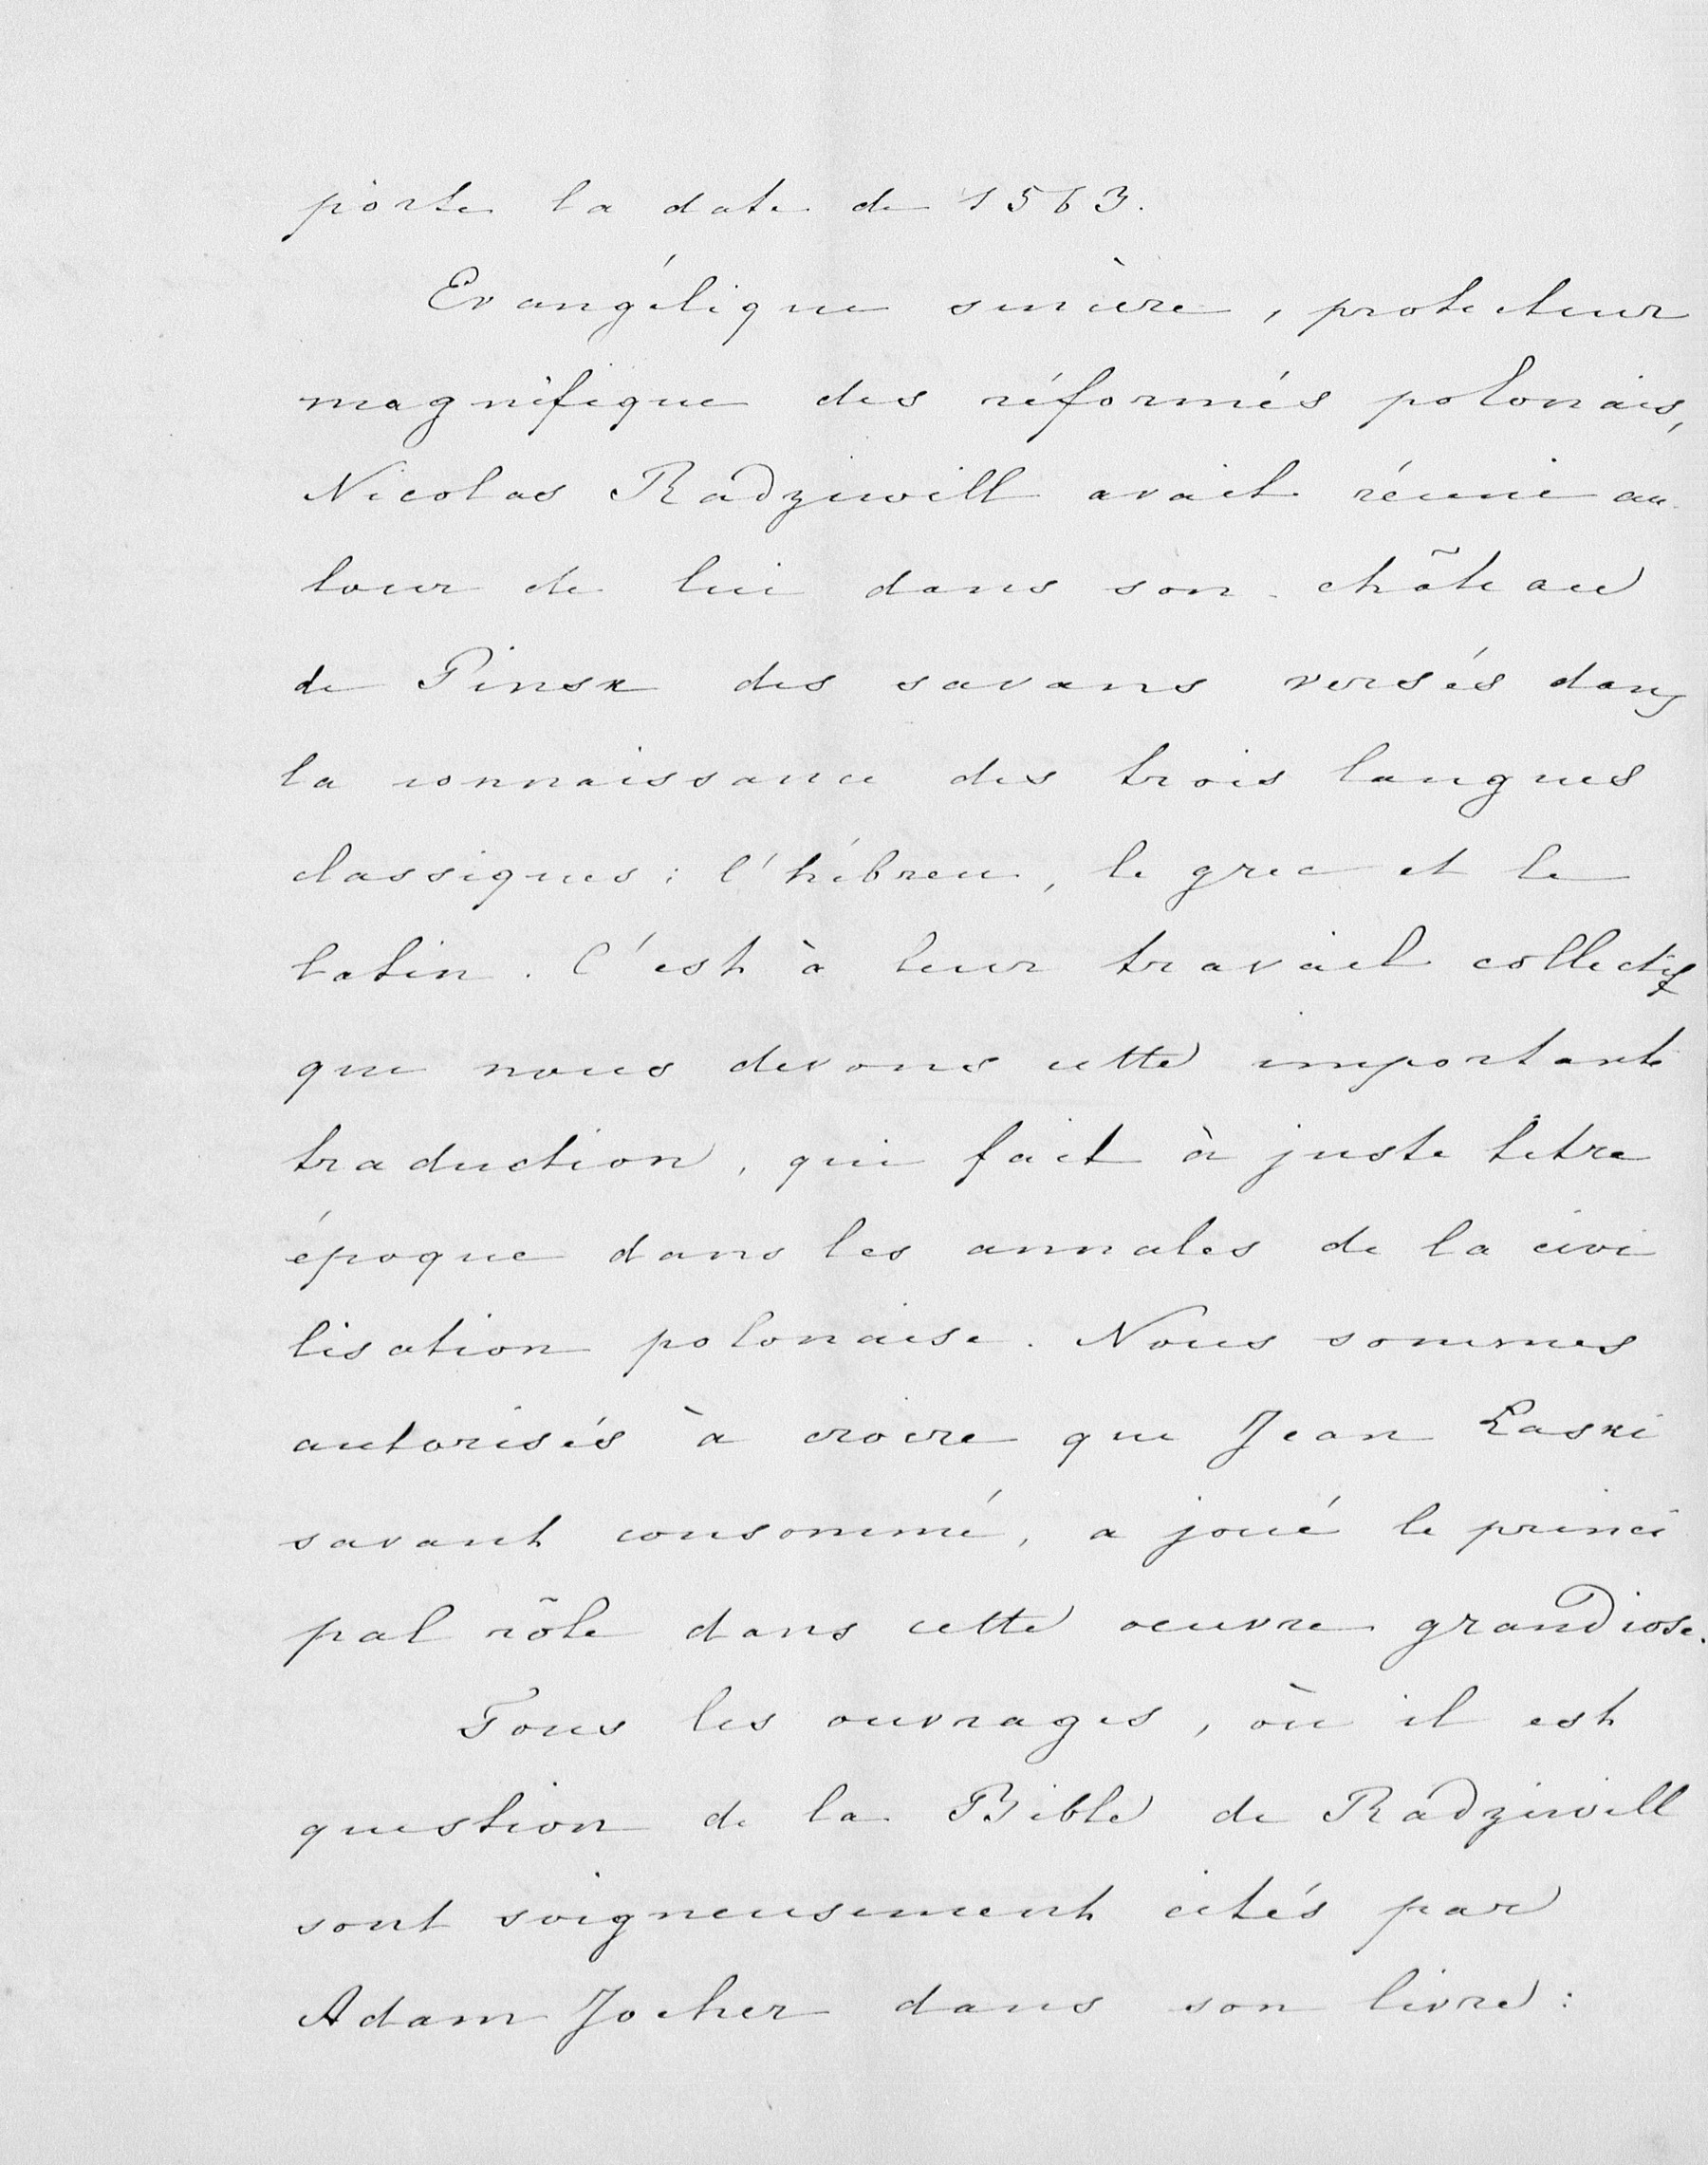 porte la date de 1563.
Evangélique sincère, protecteur
magnifique des réformés polonais,
Nicolas Radziwill avait réuni au-
tour de lui dans son château
de Pinsk des savans versés dans
la connaissance des trois langues
classiques: l'hébreu, le grec et le
latin. C'est à leur travail collectif
que nous devons cette importante
traduction, qui fait à juste titre
époque dans les annales de la civi
lisation polonaise. Nous sommes
autorisés à croire que Jean Łaski
savant consommé, a joué le princi
pal rôle dans cette oeuvre grandiose.
Tous les ouvrages, où il est
question de la Bible de Radziwill
sont soigneusement cités par
Adam Jocher dans son livre: